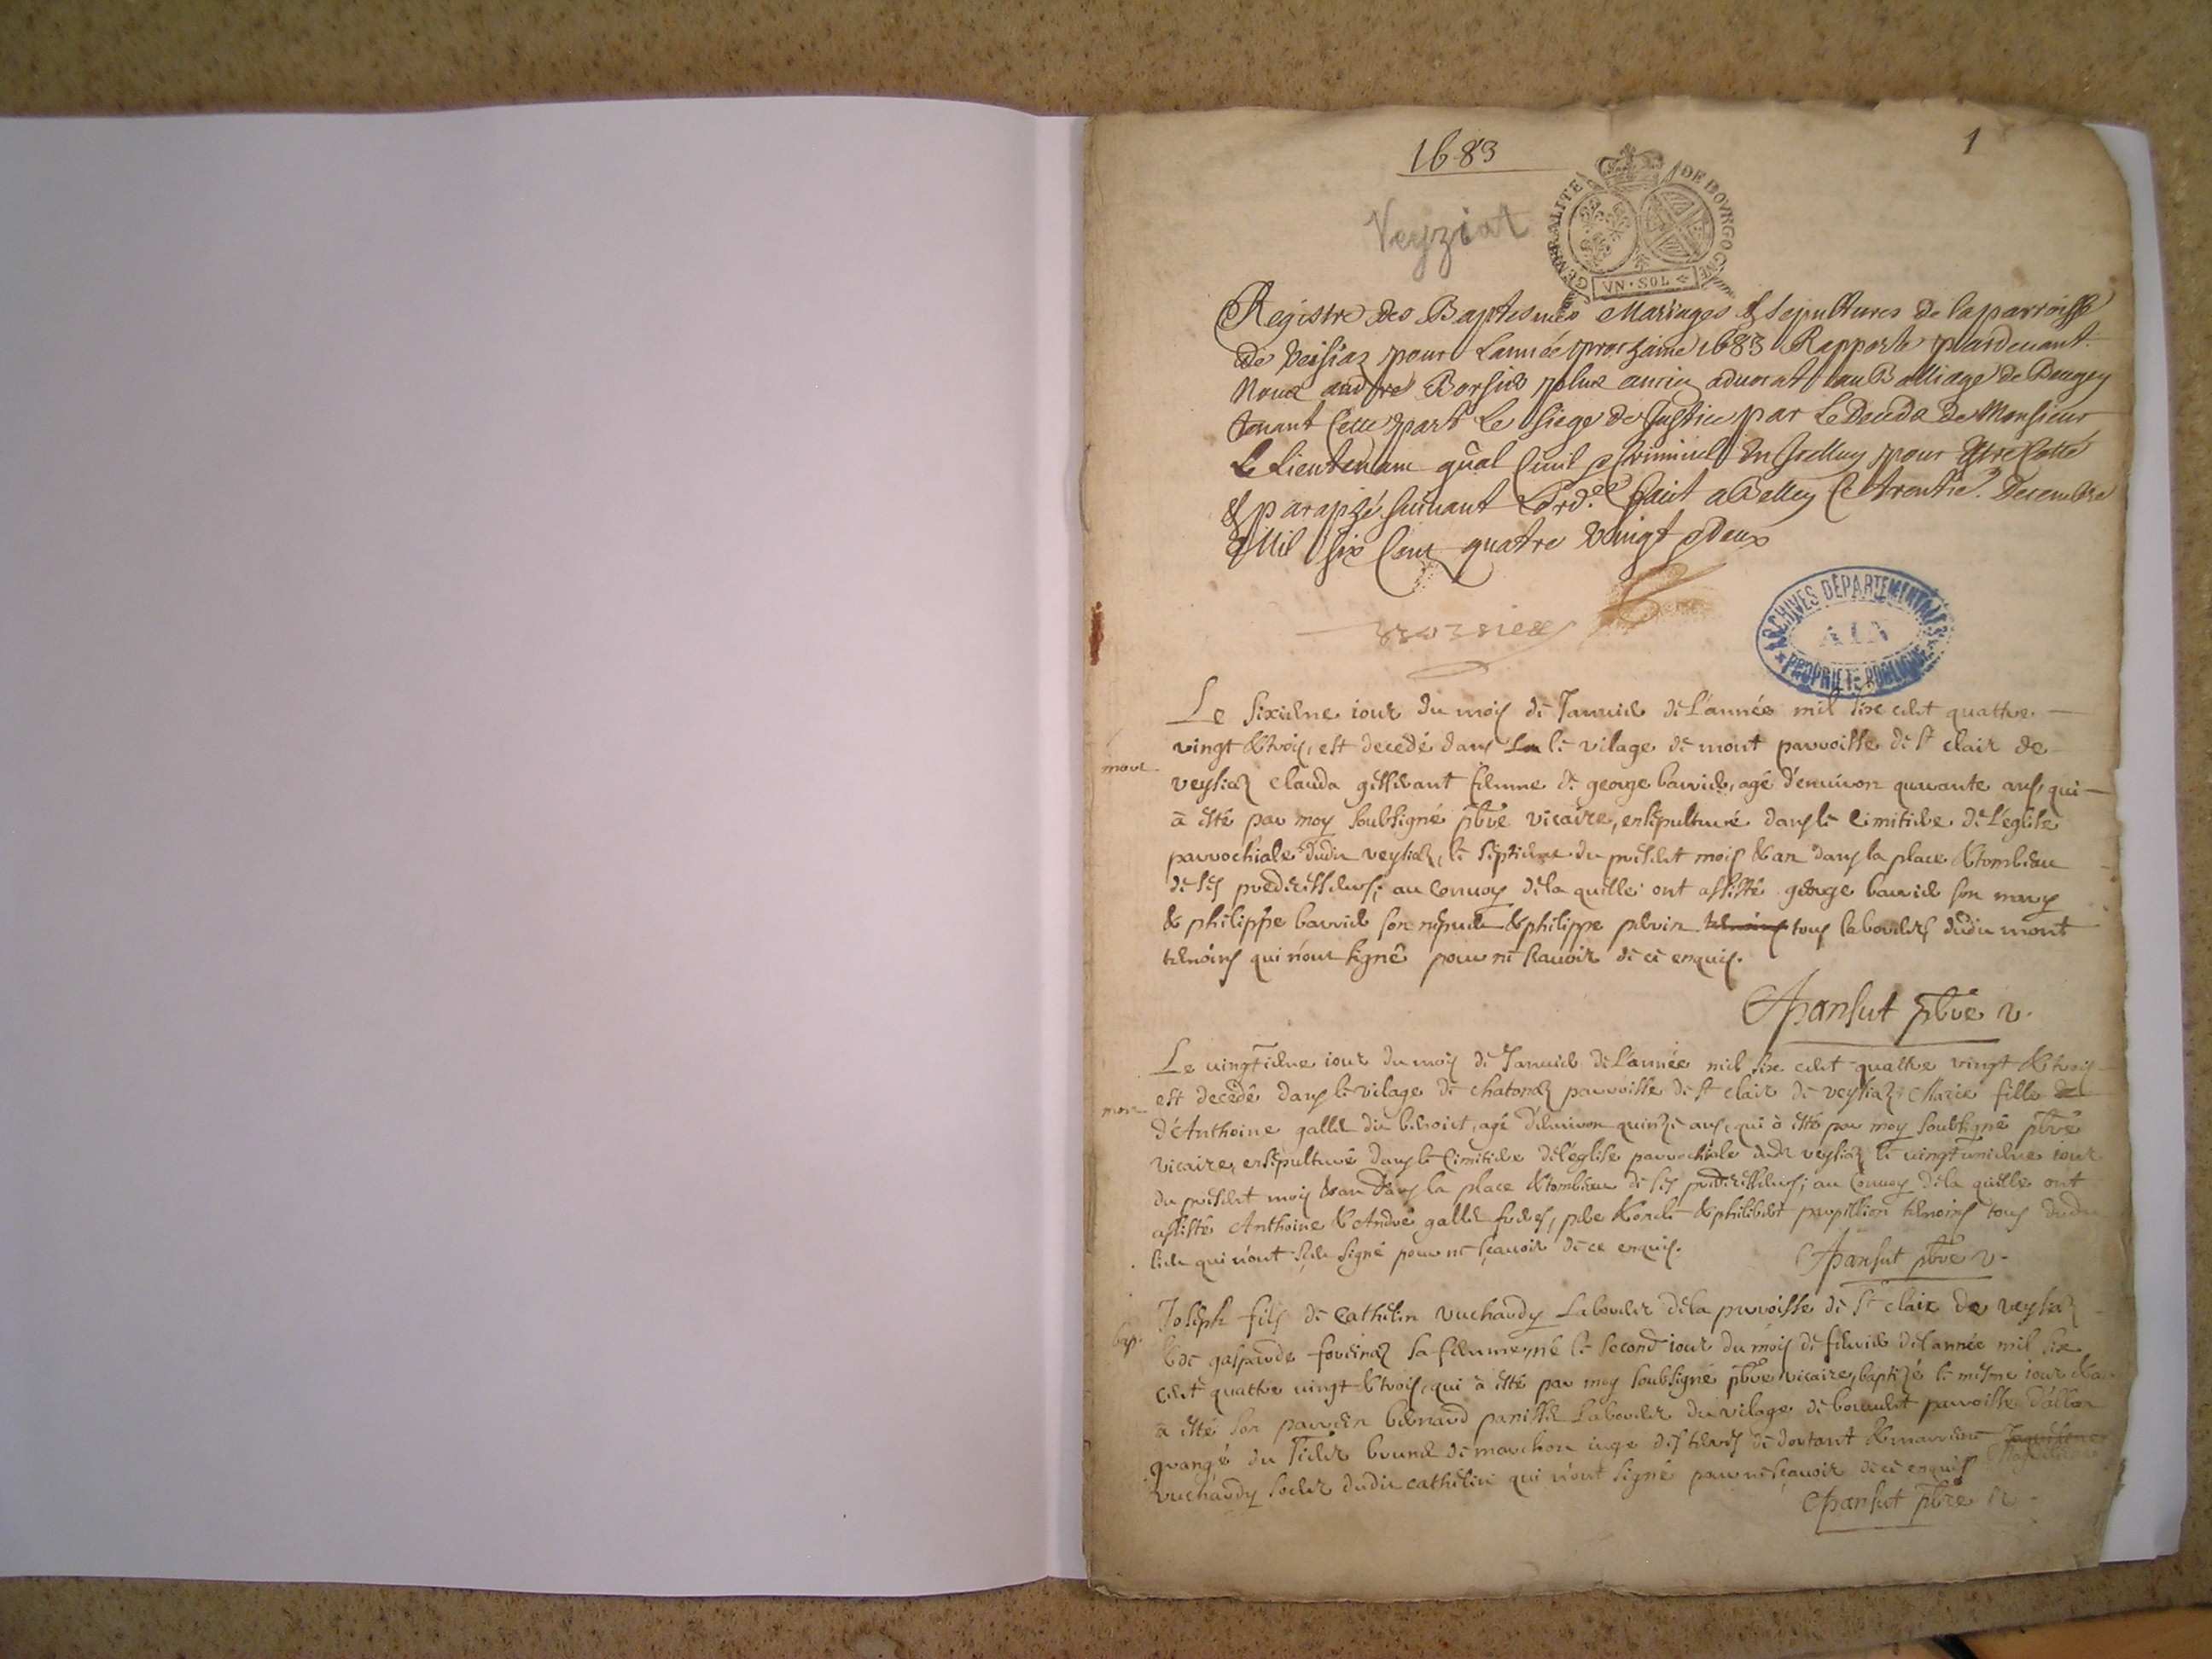 1683
1
Veyziat
GENERALITE DE BOVRGOGNE
VN · SOL
Registre des Baptesmes Mariages & sepultures de la parroisse
de Veisiaz pour Lannée prochaine 1683 Rapporté pardeuant
Nous andre Borsier plus ancien aduocat au Balliage de Beugey
tenant cette part Le siege de Justice par Le Deceds de Monsieur
Le Lieutenant gñal Ciuil & Criminel pour Estre Cotté
& paraphé suiuant Lord.ce fait a Belley Ce trentie.e Decembre
Mil six Cent quatre Vingt Deux
ARCHIVES DÉPARTEMENTALES
AIN
PROPRIÉTÉ PUBLIQUE
Le sixieme iour du mois de Januier de L'année mil six cent quattre
vingt & trois, est decedé dans le vilage de mont parroisse de st clair de
mort
veysiaz Clauda femme de george barrier, agé d'enuiron quarante ans, qui
à esté par moy soubsigné pbre vicaire, ensepulturé dans le cimitiere de L'eglise
parrochiale dudit veysiaz, le septieme du present mois & an dans la place & tombeau
de ses predecesseurs; au Conuoy de la quelle ont assisté george barrier son mary
& philippe barrier son nepueu & philippe perrin temoins tous laboureurs dudit mont
temoins qui n'ont signé pour ne sauoir de ce enquis.
Pansut pbre v.
Le uingtieme iour du mois de Januier de L'année mil six cent quattre vingt & trois
est decedé dans le vilage de chatonaz parroisse de st clair de veysiaz Marie fille
mort
d'Anthoine gallet dit benoict, agé d'enuiron quinze ans, qui à esté par moy soubsigné pbre
vicaire, ensepulturé dans le Cimitiere de l'eglise parrochiale dudit veysiaz le uingt unieme iour
du present mois & an dans la place & tombeau de ses predecesseurs; au Conuoy de la quelle ont
assisté Anthoine & André gallet freres, pere & oncle & philibert papillion temoins tous dudit
lieu qui n'ont sceu signé pour ne sçauoir de ce enquis.
Pansut pbre v.
Joseph fils de Cathelin vuchardy Laboureur de la parroisse de st clair de veysiaz
bap.
& de gasparde sa femme, né le second iour du mois de feurier de l'année mil six
cent quattre uingt & trois, qui à esté par moy soubsigné pbre vicaire, baptizé le mesme iour &
à esté son parrein bernard panisset Laboureur du vilage de parroisse d'
du sieur brunet de marchon iuge des terres de dortant & marreine
vuchardy soeur dudit cathelin qui n'ont signé pour ne sçauoir de ce enquis
Pansut pbre v.